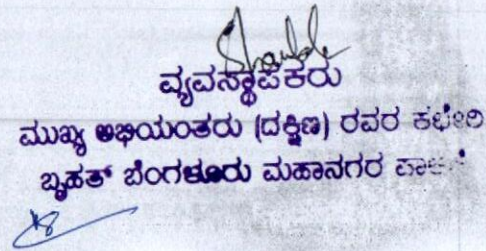 ವ್ಯವಸ್ಥಾಪಕರು
ಮುಖ್ಯ ಅಭಿಯಂತರು (ದಕ್ಷಿಣ) ರವರ ಕಛೇರಿ
ಬೃಹತ್ ಬೆಂಗಳೂರು ಮಹಾನಗರ